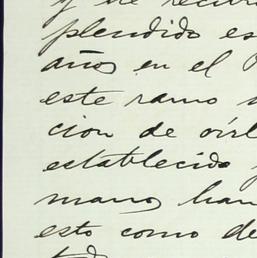 y he recibi
plendido es
años en el
este ramo
cion de oírl
establecido y
mano, han
esto como de